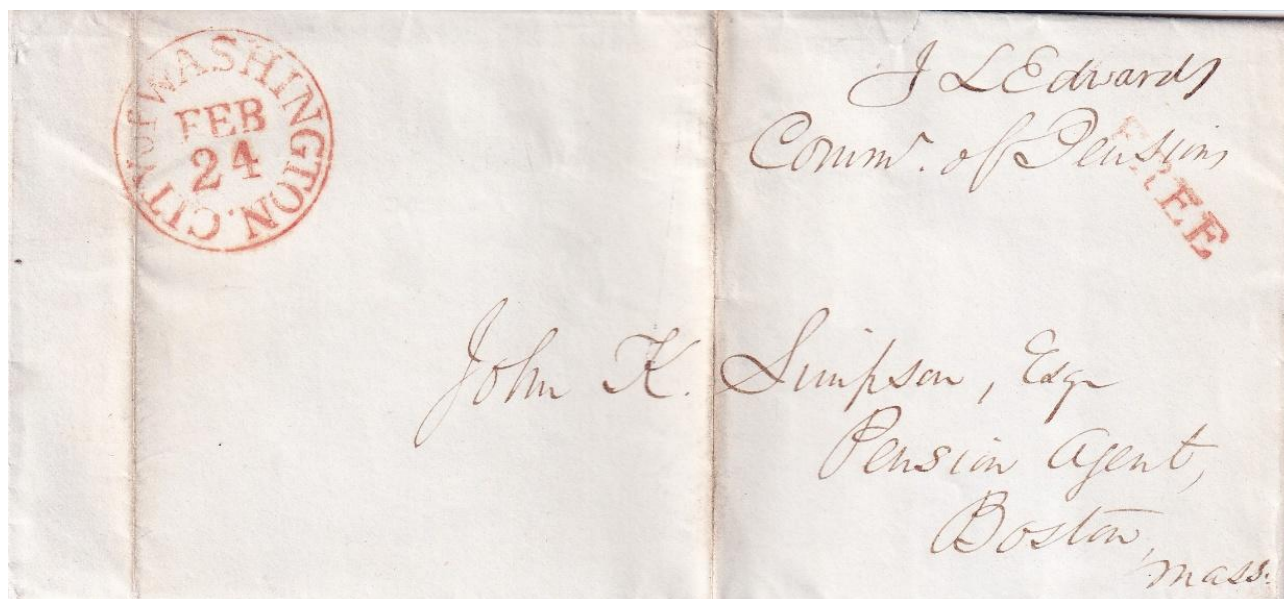 CITY of WASHINGTON.
FEB
24
J L Edwards
Commr. of Pensions
FREE
John K. Simpson, Esqr
Pension Agent,
Boston,
Mass.